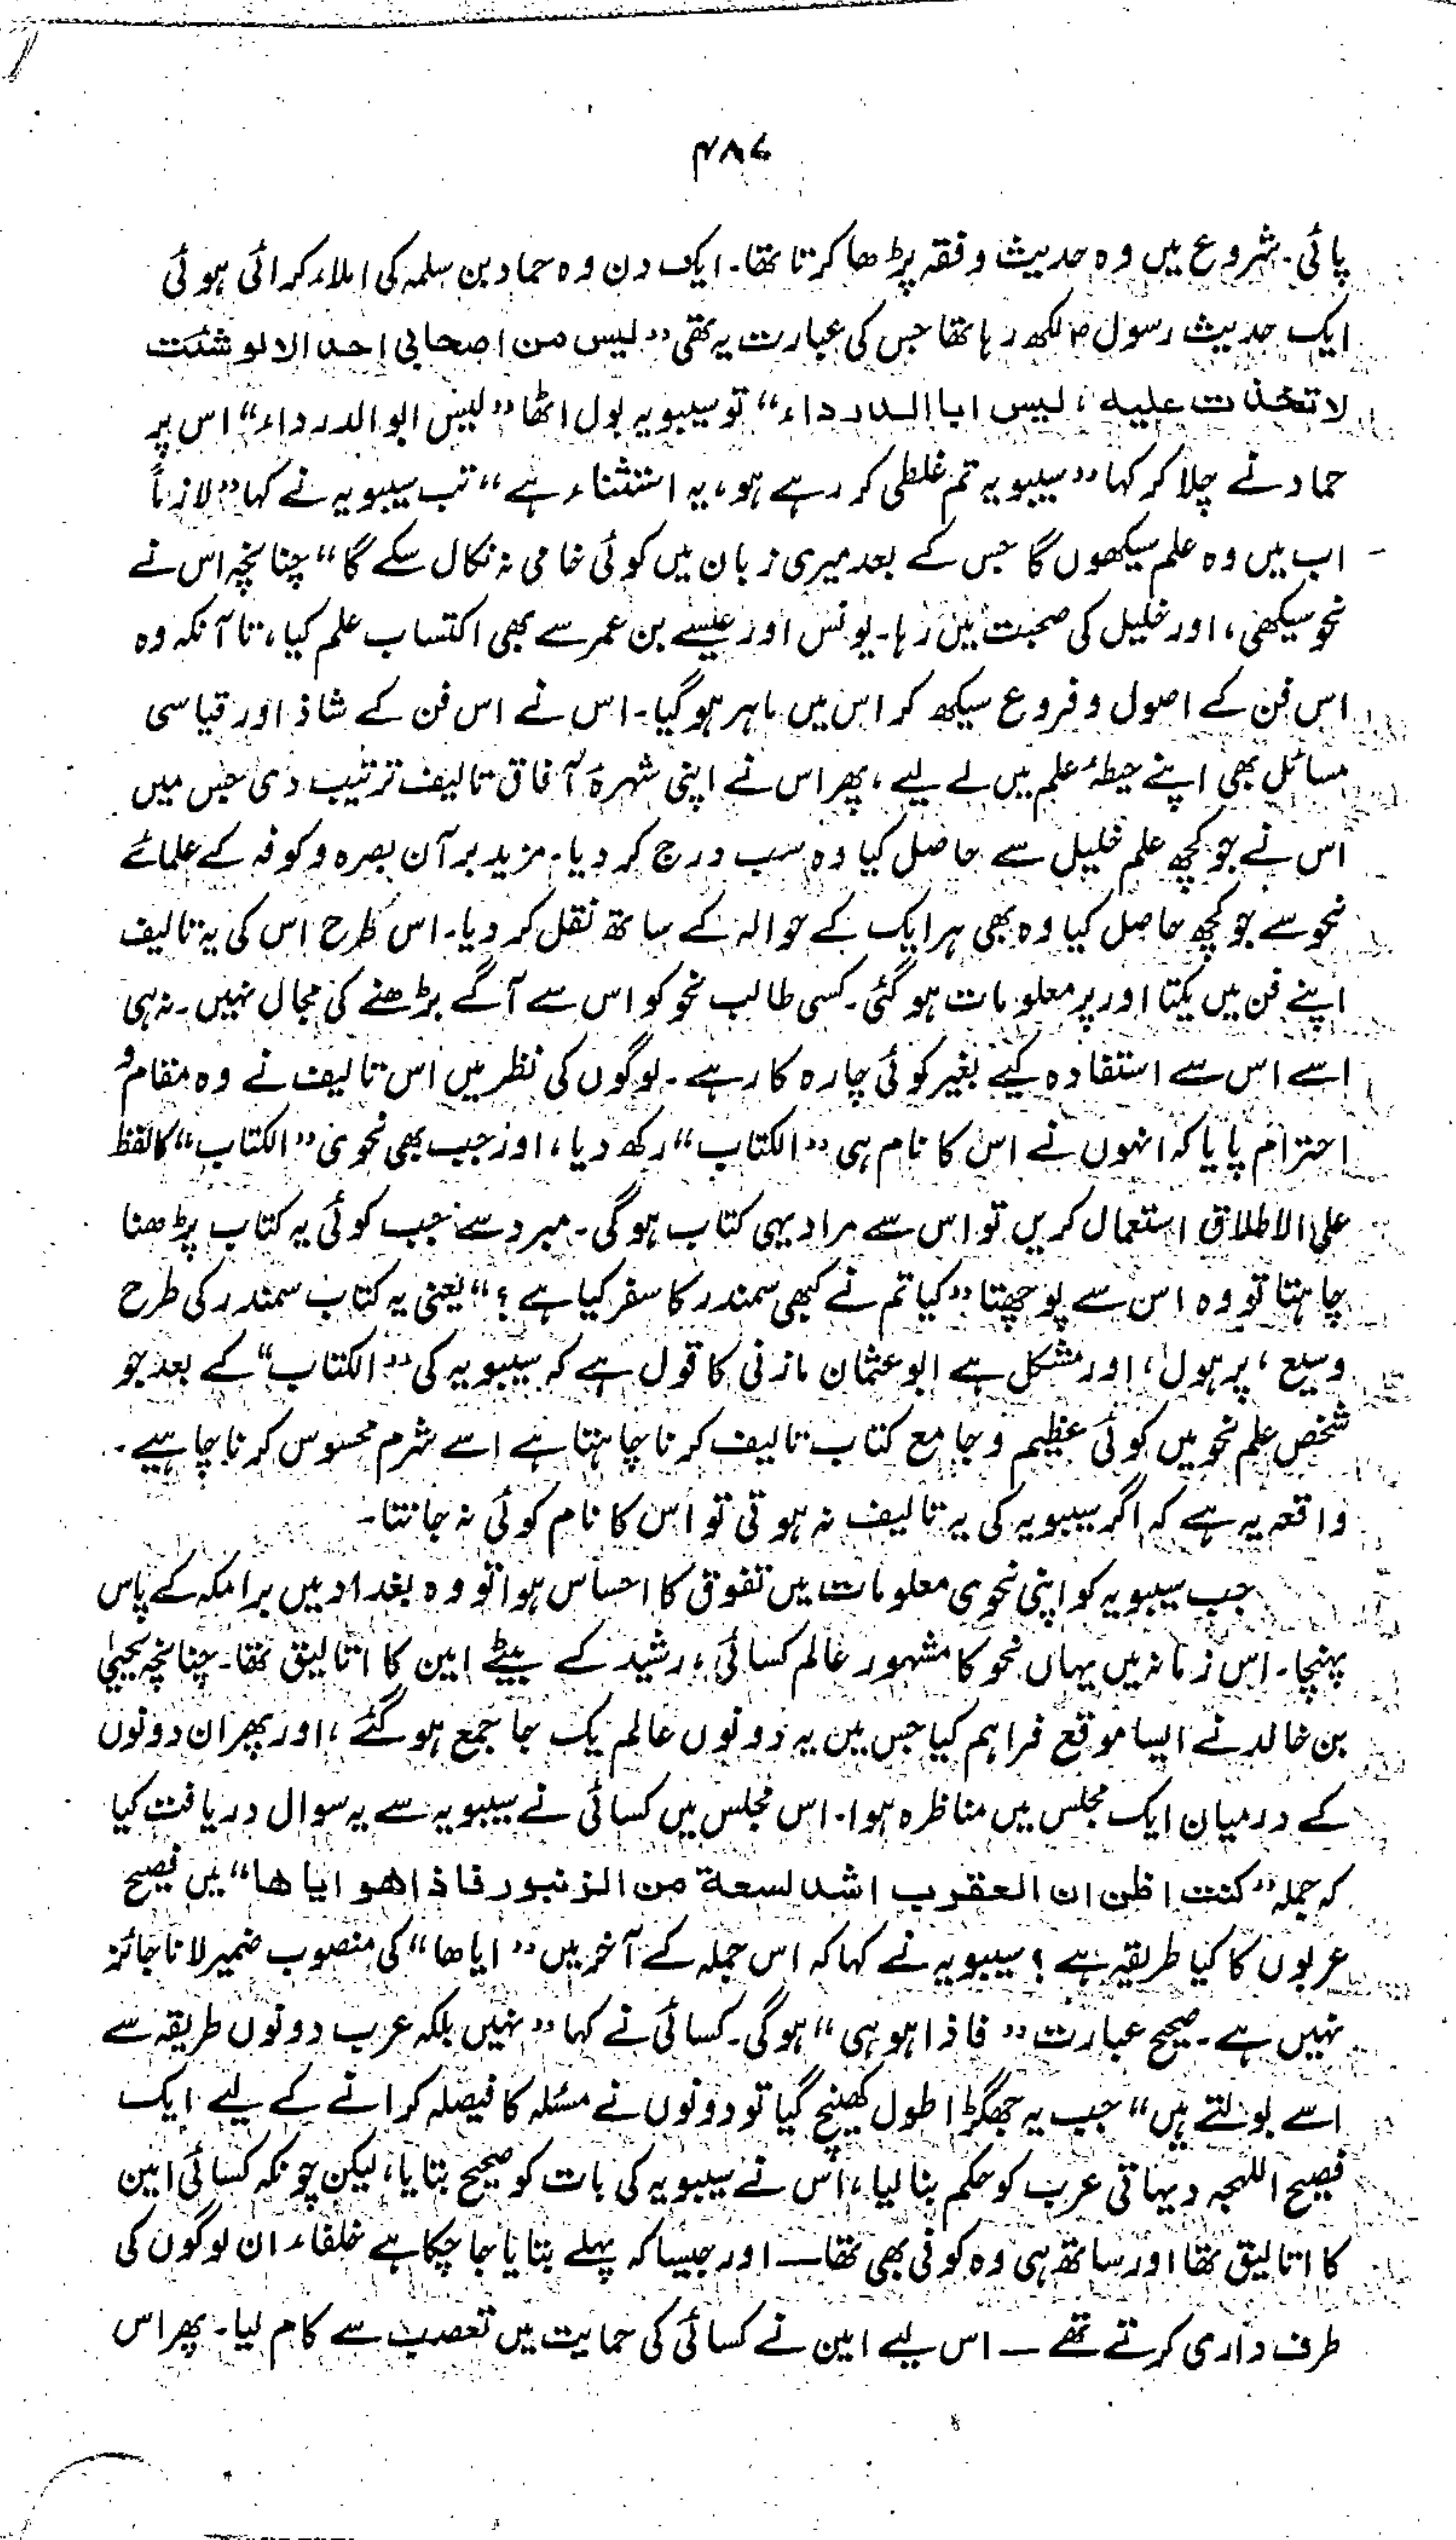 ۴۸۷
پائی۔ شروع میں وہ حدیث و فقہ پڑھا کرتا تھا۔ ایک دن وہ حماد بن سلمہ کی املاء کرائی ہوئی
ایک حدیث رسولؐ لکھ رہا تھا جس کی عبارت یہ تھی ”لیس من اصحابی احد الا لو شئت
لاتخذت علیہ، لیس ابا الدرداء“ تو سیبویہ بول اٹھا ”لیس ابو الدرداء“ اس پر
حماد نے چلا کر کہا ”سیبویہ تم غلطی کر رہے ہو، یہ استثناء ہے“ تب سیبویہ نے کہا ”لازماً
اب میں وہ علم سیکھوں گا جس کے بعد میری زبان میں کوئی خامی نہ نکال سکے گا“ چنانچہ اس نے
نحو سیکھی، اور خلیل کی صحبت میں رہا۔ یونس اور عیسےٰ بن عمر سے بھی اکتساب علم کیا، تا آنکہ وہ
اس فن کے اصول و فروع سیکھ کر اس میں ماہر ہو گیا۔ اس نے اس فن کے شاذ اور قیاسی
مسائل بھی اپنے حیطۂ علم میں لے لیے، پھر اس نے اپنی شہرۂ آفاق تالیف ترتیب دی جس میں
اس نے جو کچھ علم خلیل سے حاصل کیا وہ سب درج کر دیا۔ مزید برآں بصرہ و کوفہ کے علمائے
نحو سے جو کچھ حاصل کیا وہ بھی ہر ایک کے حوالہ کے ساتھ نقل کر دیا۔ اس طرح اس کی یہ تالیف
اپنے فن میں یکتا اور پر معلومات ہو گئی۔ کسی طالب نحو کو اس سے آگے بڑھنے کی مجال نہیں۔ نہ ہی
اسے اس سے استفادہ کیے بغیر کوئی چارہ کار ہے۔ لوگوں کی نظر میں اس تالیف نے وہ مقام و
احترام پایا کہ انہوں نے اس کا نام ہی ”الکتاب“ رکھ دیا، اور جب بھی نحوی ”الکتاب“ کا لفظ
علی الاطلاق استعمال کریں تو اس سے مراد یہی کتاب ہو گی۔ مبرد سے جب کوئی یہ کتاب پڑھنا
چاہتا تو وہ اس سے پوچھتا ”کیا تم نے کبھی سمندر کا سفر کیا ہے؟“ یعنی یہ کتاب سمندر کی طرح
وسیع، پر ہول، اور مشکل ہے ابو عثمان مازنی کا قول ہے کہ سیبویہ کی ”الکتاب“ کے بعد جو
شخص علم نحو میں کوئی عظیم و جامع کتاب تالیف کرنا چاہتا ہے اسے شرم محسوس کرنا چاہیے۔
واقعہ یہ ہے کہ اگر سیبویہ کی یہ تالیف نہ ہوتی تو اس کا نام کوئی نہ جانتا۔
جب سیبویہ کو اپنی نحوی معلومات میں تفوق کا احساس ہوا تو وہ بغداد میں برامکہ کے پاس
پہنچا۔ اس زمانہ میں یہاں نحو کا مشہور عالم کسائی، رشید کے بیٹے امین کا اتالیق تھا۔ چنانچہ یحییٰ
بن خالد نے ایسا موقع فراہم کیا جس میں یہ دونوں عالم یک جا جمع ہو گئے، اور پھر ان دونوں
کے درمیان ایک مجلس میں مناظرہ ہوا۔ اس مجلس میں کسائی نے سیبویہ سے یہ سوال دریافت کیا
کہ جملہ ”کنت اظن ان العقرب اشد لسعة من الزنبور فاذا هو ایاها“ میں فصیح
عربوں کا کیا طریقہ ہے؟ سیبویہ نے کہا کہ اس جملہ کے آخر میں ”ایاها“ کی منصوب ضمیر لانا جائز
نہیں ہے۔ صحیح عبارت ”فاذا ہو ہی“ ہو گی۔ کسائی نے کہا ”نہیں بلکہ عرب دونوں طریقہ سے
اسے بولتے ہیں“ جب یہ جھگڑا طول کھینچ گیا تو دونوں نے مسئلہ کا فیصلہ کرانے کے لیے ایک
فصیح اللہجہ دیہاتی عرب کو حکم بنا لیا، اس نے سیبویہ کی بات کو صحیح بتایا، لیکن چونکہ کسائی امین
کا اتالیق تھا اور ساتھ ہی وہ کوفی بھی تھا — اور جیسا کہ پہلے بتایا جا چکا ہے خلفاء ان لوگوں کی
طرف داری کرتے تھے — اس لیے امین نے کسائی کی حمایت میں تعصب سے کام لیا۔ پھر اس